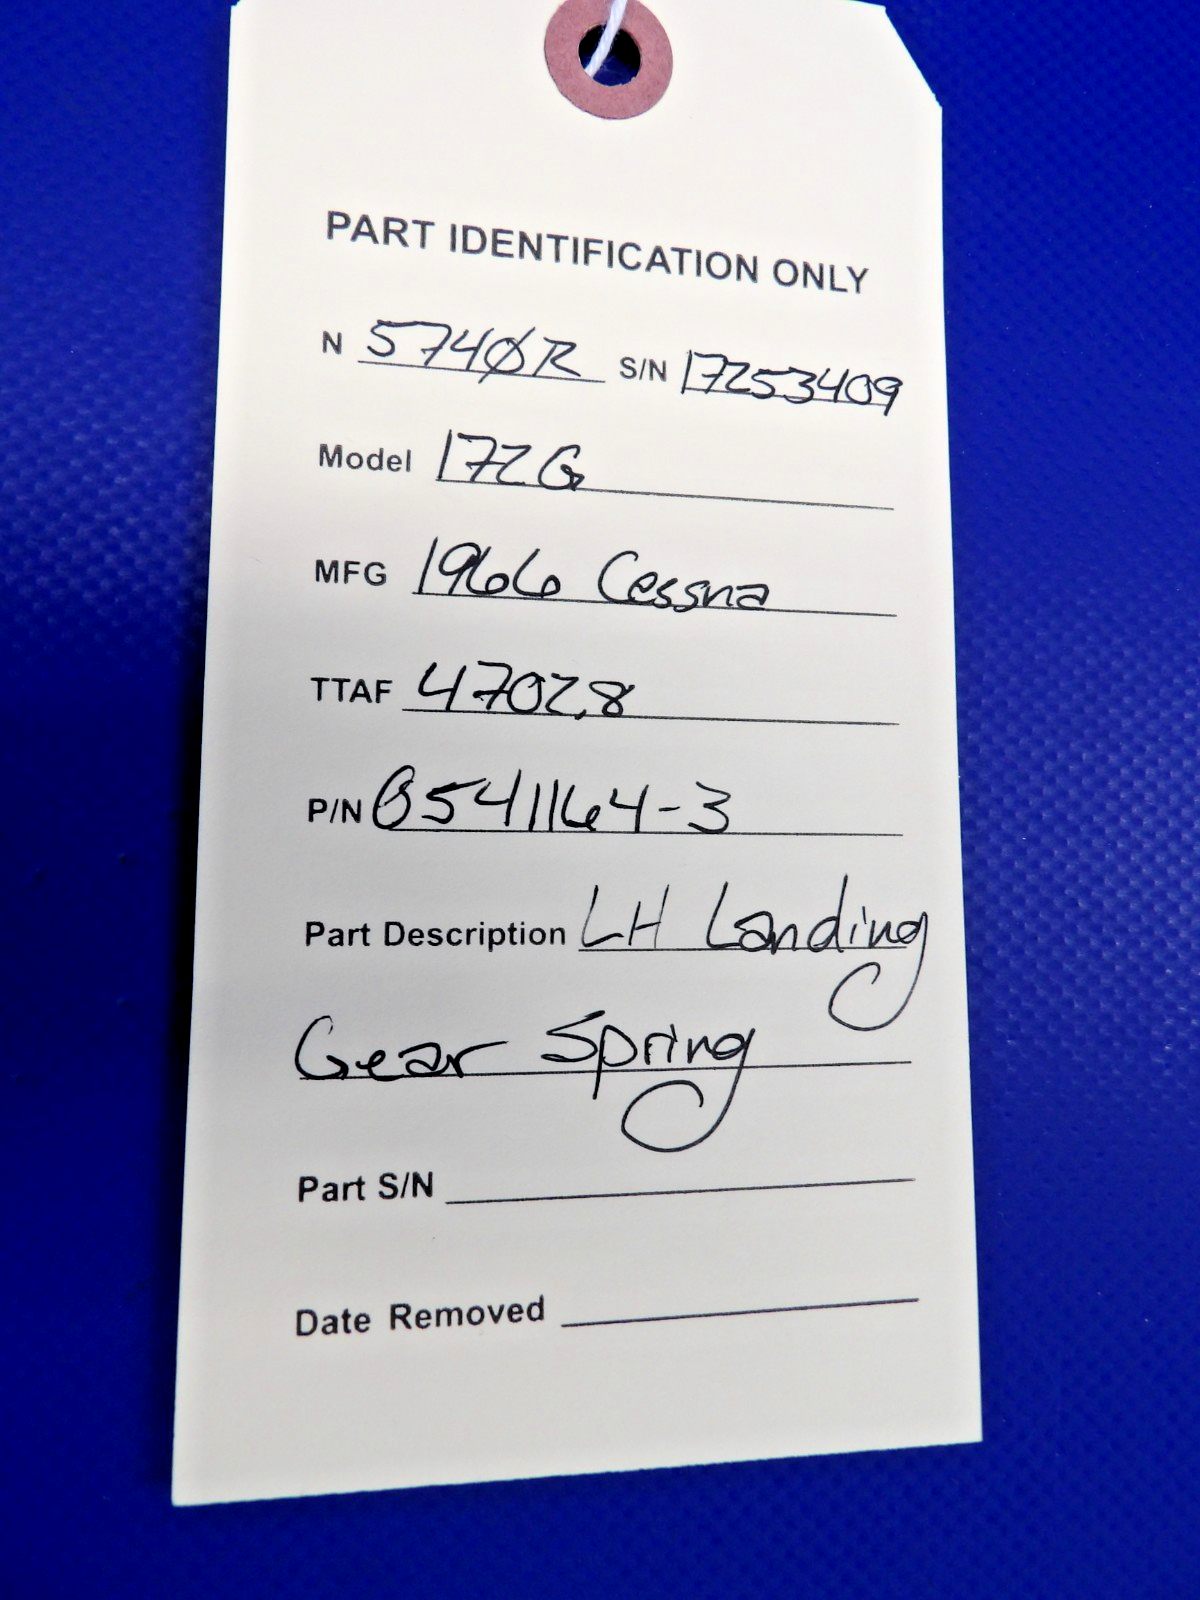 PART IDENTIFICATION ONLY
N 5740R S/N 17253409
Model 172G
MFG 1966 Cessna
TTAF 4702.8
P/N 0541164-3
Part Description LH Landing
Gear Spring
Part S/N
Date Removed